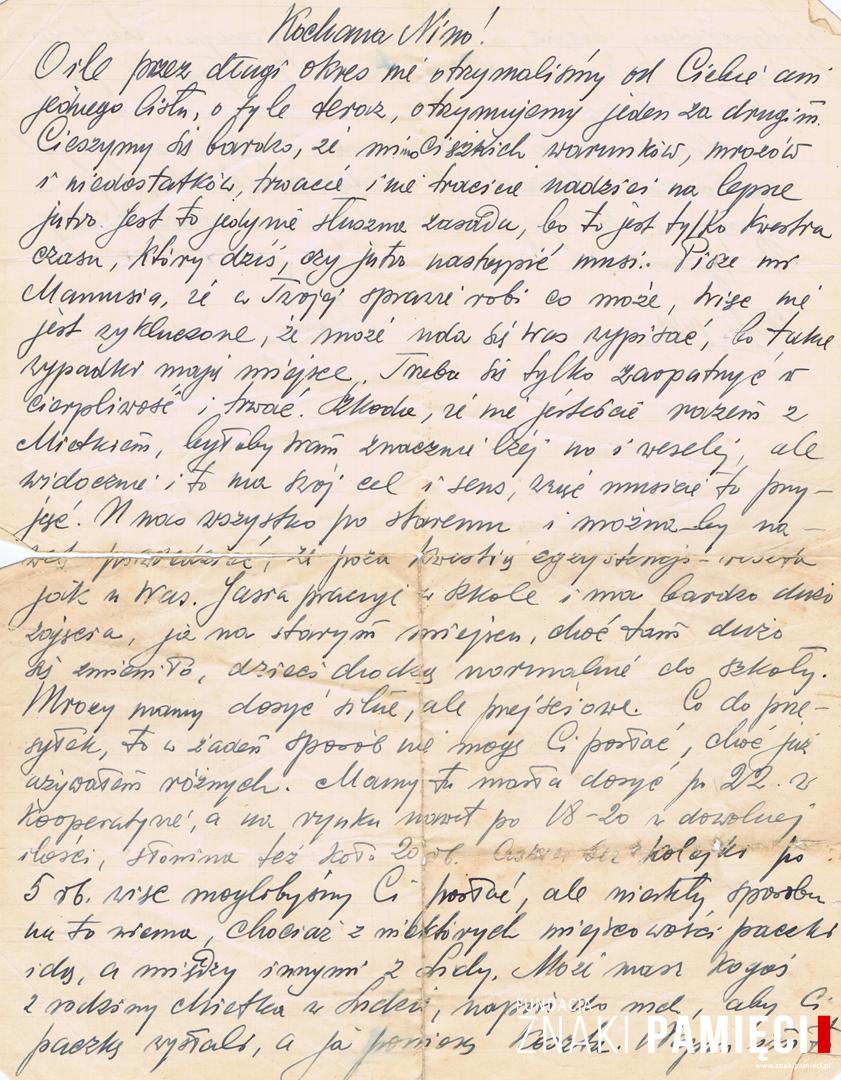 Kochana Nino!
O ile przez długi okres nie otrzymaliśmy od Ciebie ani
jednego listu, o tyle teraz, otrzymujemy jeden za drugim.
Cieszymy się bardzo, że mimo ciężkich warunków, mrozów
i niedostatków, trwacie i nie tracicie nadziei na lepsze
jutro. Jest to jedynie słuszna zasada, bo to jest tylko kwestia
czasu, który dziś, czy jutro nastąpić musi. Pisze mi
Mamusia, że w Twojej sprawie robi co może, więc nie
jest wykluczone, że może uda się Was wypisać, bo takie
wypadki mają miejsce. Trzeba się tylko zaopatrzyć w
cierpliwość i trwać. Szkoda, że nie jesteście razem z
Mietkiem, byłoby Wam znacznie lżej no i weselej, ale
widocznie i to ma swój cel i sens, więc musicie to przy-
jąć. U nas wszystko po staremu i można-by na-
wet powiedzieć, że poza kwestią egzystencji
jak u Was. Jasia pracuje w szkole i ma bardzo dużo
zajęcia, ja na starym miejscu, choć tam dużo
się zmieniło, dzieci chodzą normalnie do szkoły.
Mrozy mamy dosyć silne, ale przejściowe. Co do prze-
syłek, to w żaden sposób nie mogę Ci posłać, choć już
używałem różnych. Mamy tu masła dosyć po 22. w
kooperatywie, a na rynku nawet po 18-20 w dowolnej
ilości, słonina też koło 20 rb. bez kolejki po
5 rb. więc moglibyśmy Ci posłać, ale niestety sposobu
na to niema, chociaż z niektórych miejscowości paczki
idą, a między innymi z Lidy. Może masz kogoś
z rodziny Mietka w Lidzie, napisz do nich, aby Ci
paczkę wysłali, a ja poniosę koszta.
FUNDACJA
ZNAKI PAMIĘCI
www.znakipamieci.pl